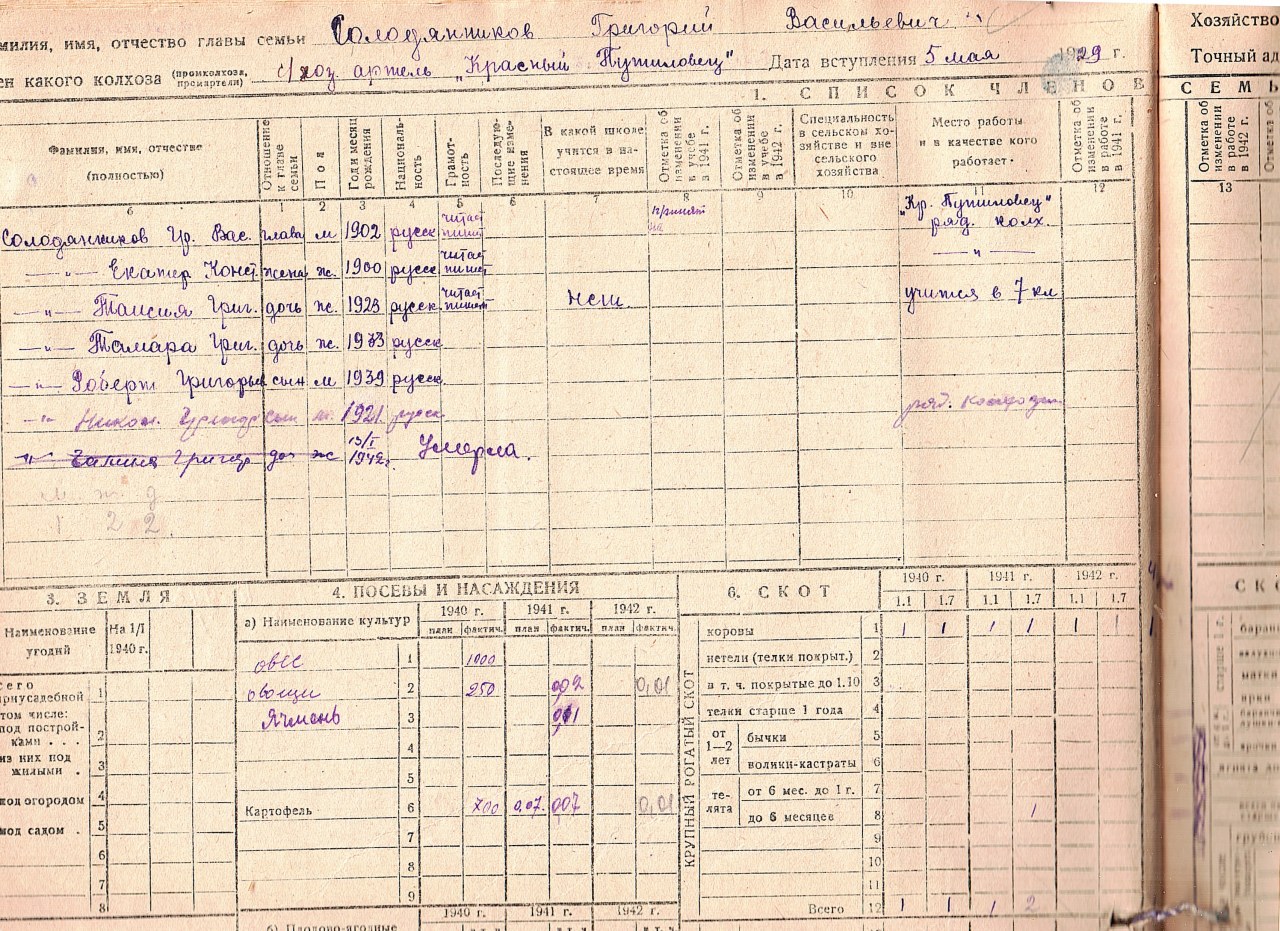 амилия, имя, отчество главы семьи Солодянников Григорий Васильевич
ен какого колхоза (промколхоза, промартели) с/хоз. артель „Красный Путиловец" Дата вступления 5 мая 1929 г.
1. СПИСОК ЧЛЕНОВ
Фамилия, имя, отчество (полностью)
Отношение к главе семьи
Пол
Год и месяц рождения
Националь-ность
Грамот-ность
Последую-щие изме-нения
В какой школе учится в на-стоящее время
Отметка об изменении в учебе в 1941 г.
Отметка об изменении в учебе в 1942 г.
Специальность в сельском хо-зяйстве и вне сельского хозяйства
Место работы и в качестве кого работает
Отметка об изменении в работе в 1941 г.
б 1 2 3 4 5 6 7 8 9 10 11 12
Солодянников Гр. Вас. глава м 1902 русск читает пишет принят на „Кр. Путиловец" ряд. колх.
—„— Екатер Конст жена ж. 1900 русск читает пишет —„—
—„— Таисия Григ. дочь ж. 1923 русск читает пишет нет. учится в 7 кл
—„— Тамара Григ. дочь ж. 1933 русск
—„— Роберт Григорьев сын м 1939 русск
—„— Никон. сын м. 1921 русск ряд.
„ Галина Григор доч ж 13/I 1942г. Умерла.
м. ж. д
1 2 2
3. ЗЕМЛЯ
Наименование угодий
На 1/I 1940 г.
сего приусадебной 1
том числе:
под построй-ками . . . 2
из них под жилыми . 3
под огородом 4
под садом . 5
6
7
8
4. ПОСЕВЫ И НАСАЖДЕНИЯ
а) Наименование культур
1940 г. 1941 г. 1942 г.
план фактич. план фактич. план фактич.
овес 1 1000
овощи 2 250 0,02 0,01
Ячмень 3 0,01
4
5
Картофель 6 700 0,07. 0,07 0,01
7
8
9
1940 г. 1941 г. 1942 г.
б) Плодово-ягодные
6. СКОТ
1940 г. 1941 г. 1942 г.
1.1 1.7 1.1 1.7 1.1 1.7
КРУПНЫЙ РОГАТЫЙ СКОТ
коровы 1 1 1 1 1 1 1
нетели (телки покрыт.) 2
в т. ч. покрытые до 1.10 3
телки старше 1 года 4
от 1—2 лет
бычки 5
волики-кастраты 6
те-лята
от 6 мес. до 1 г. 7
до 6 месяцев 8 1
9
10
11
Всего 12 1 1 1 2
Хозяйство
Точный ад
СЕМЬ
Отметка об изменении в работе в 1942 г.
13
СКО
старше 1 г.
баран
матки
ярки